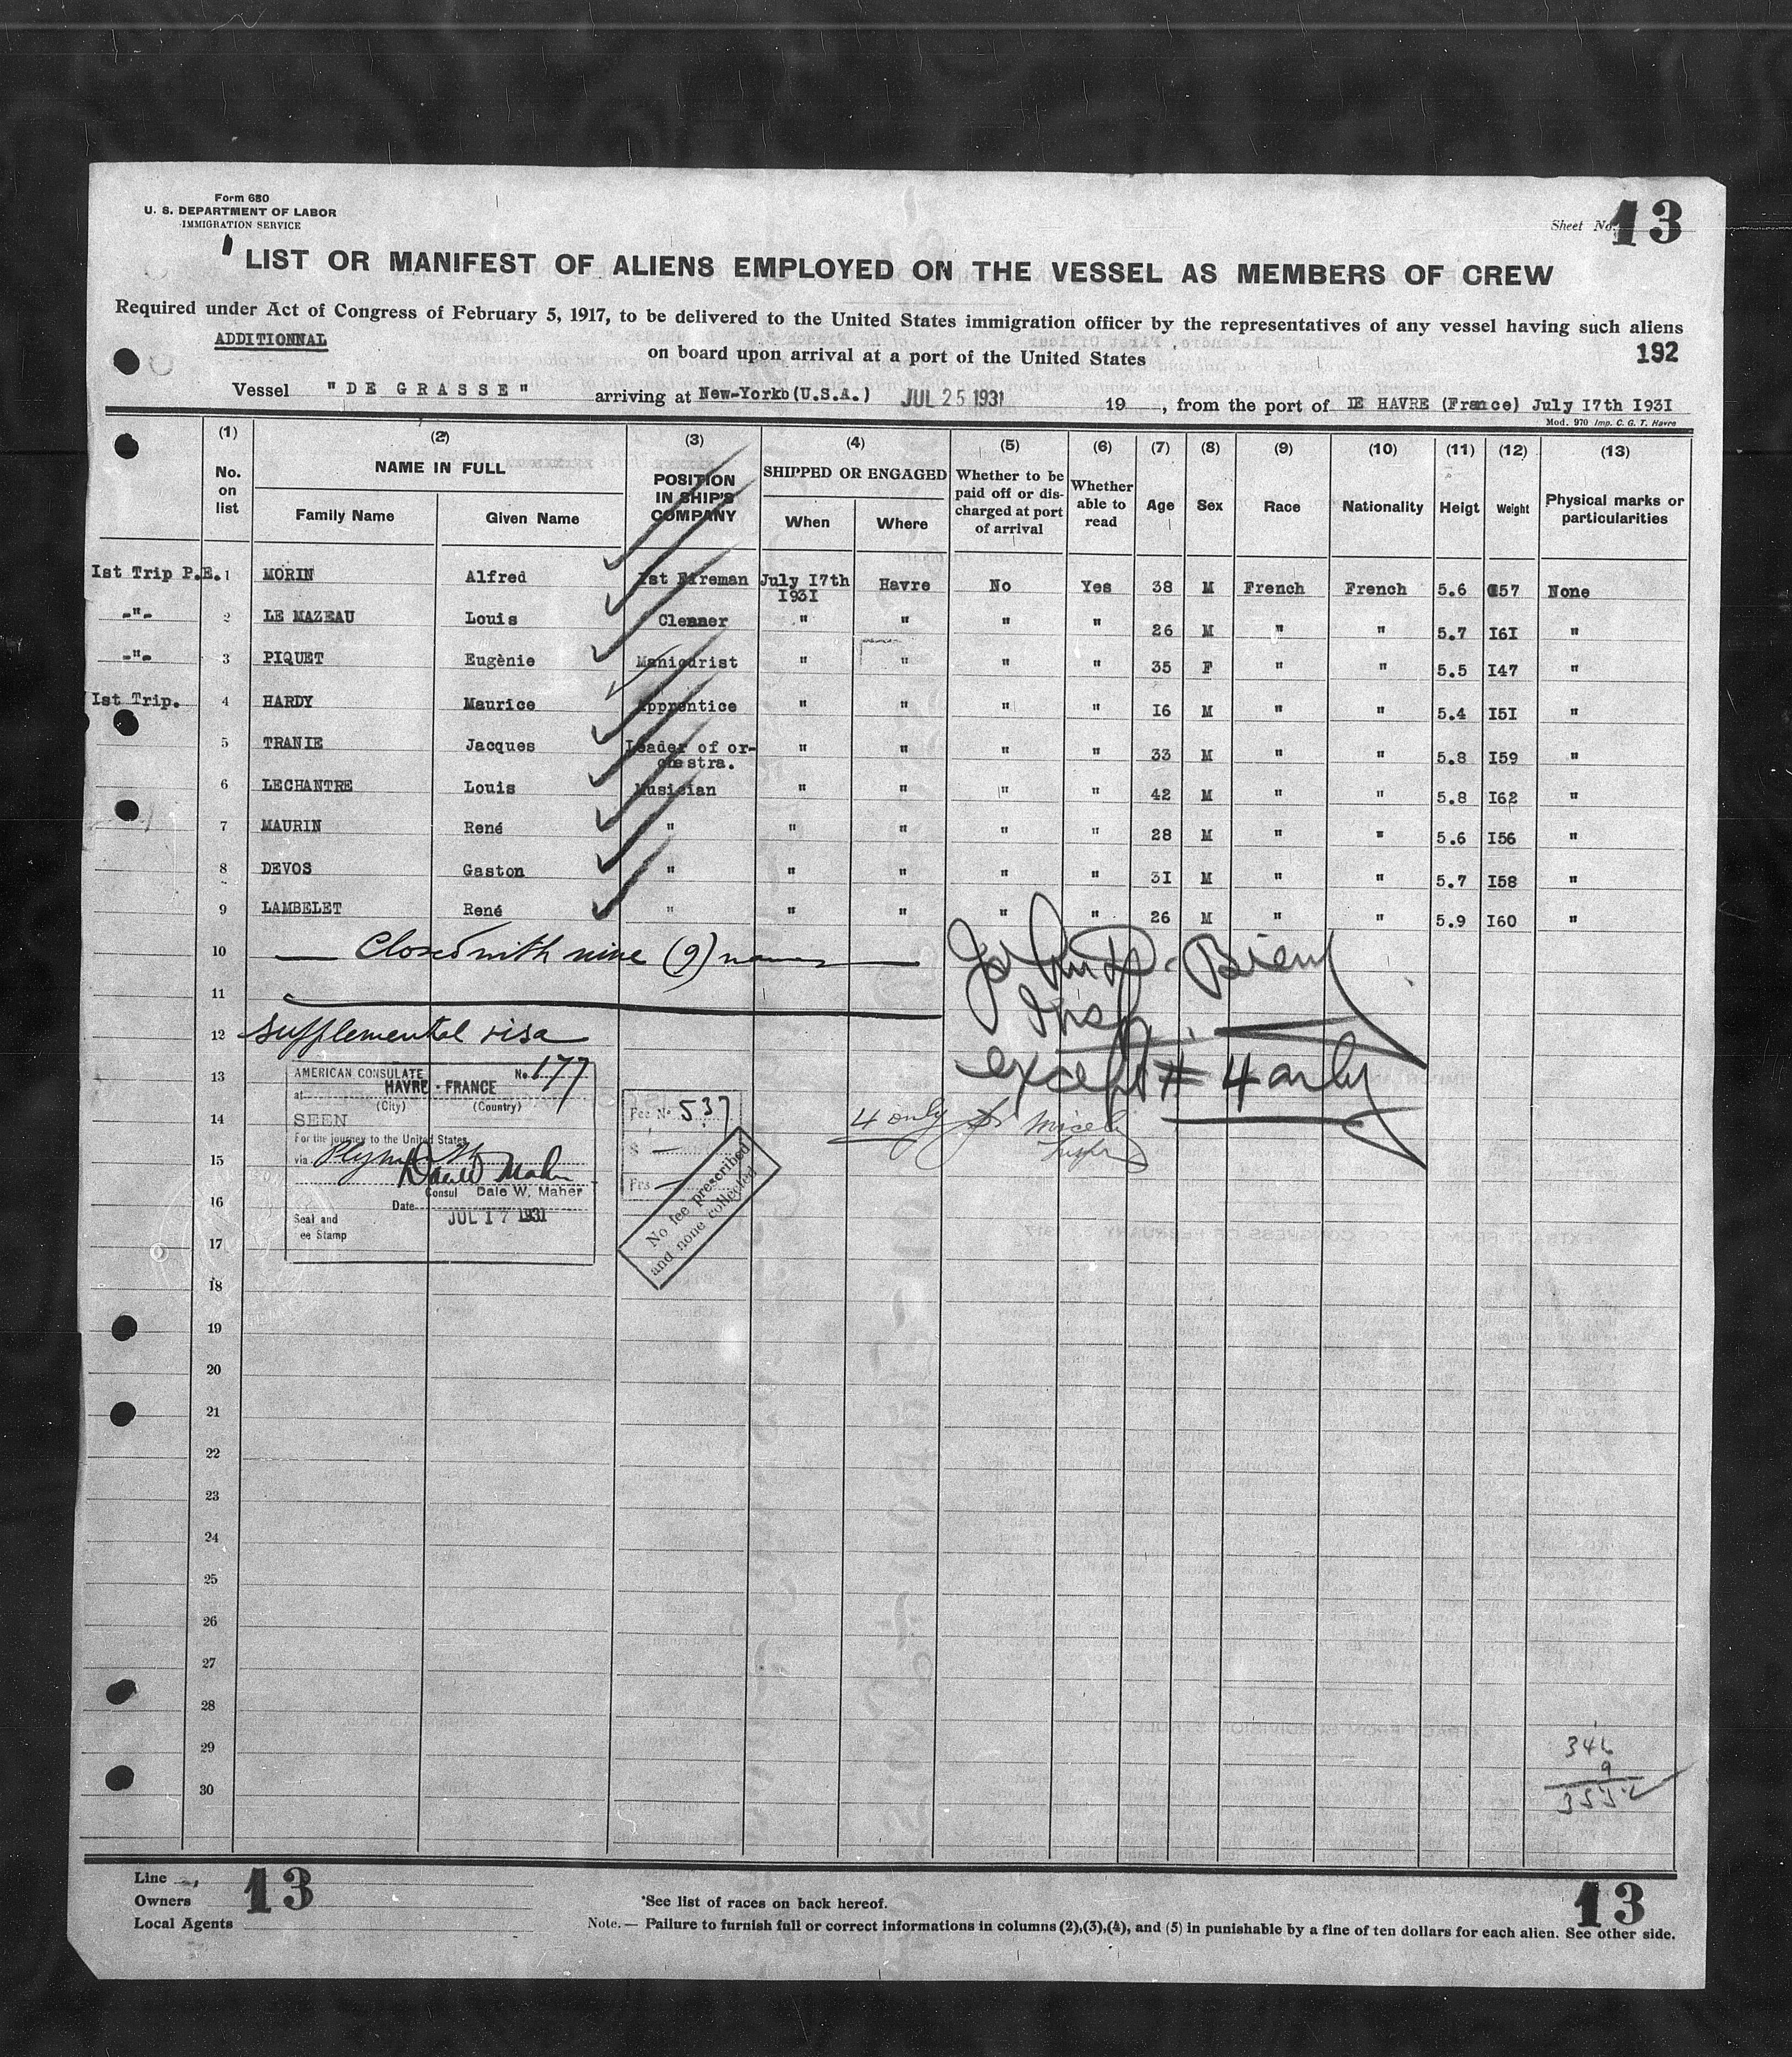 Form 680
U. S. DEPARTMENT OF LABOR
IMMIGRATION SERVICE
Sheet No. 13
LIST OR MANIFEST OF ALIENS EMPLOYED ON THE VESSEL AS MEMBERS OF CREW
Required under Act of Congress of February 5, 1917, to be delivered to the United States immigration officer by the representatives of any vessel having such aliens
ADDITIONNAL
on board upon arrival at a port of the United States
192
Vessel "DE GRASSE" arriving at New-Yorkb (U.S.A.) JUL 25 1931 19 , from the port of LE HAVRE (France) July I7th I93I
Mod. 970 Imp. C. G. T. Havre
(1) (2) (3) (4) (5) (6) (7) (8) (9) (10) (11) (12) (13)
No. on list NAME IN FULL POSITION IN SHIP'S COMPANY SHIPPED OR ENGAGED Whether to be paid off or discharged at port of arrival Whether able to read Age Sex Race Nationality Heigt Weight Physical marks or particularities
Family Name Given Name When Where
Ist Trip P.E. 1 MORIN Alfred Ist Fireman July I7th I93I Havre No Yes 38 M French French 5.6 I57 None
-"- 2 LE MAZEAU Louis Cleaner " " " " 26 M " " 5.7 I6I "
-"- 3 PIQUET Eugènie Manicurist " " " " 35 F " " 5.5 I47 "
Ist Trip. 4 HARDY Maurice Apprentice " " " " I6 M " " 5.4 I5I "
5 TRANIE Jacques Leader of or-chestra. " " " " 33 M " " 5.8 I59 "
6 LECHANTRE Louis Musician " " " " 42 M " " 5.8 I62 "
7 MAURIN René " " " " " 28 M " " 5.6 I56 "
8 DEVOS Gaston " " " " " 3I M " " 5.7 I58 "
9 LAMBELET René " " " " " 26 M " " 5.9 I60 "
10 Closed with nine (9) names
11
12 Supplemental visa
Insp.
except # 4 only
13
AMERICAN CONSULATE No. 177
at HAVRE - FRANCE
(City) (Country)
14
SEEN
For the journey to the United States
via Plymouth
15
Consul Dale W. Maher
16
Date JUL 17 1931
Seal and
ee Stamp
17
Fee No 537
$ —
Frs —
No fee prescribed
and none collected
4 only
18
19
20
21
22
23
24
25
26
27
28
29
30
346
9
355
Line
Owners
Local Agents
13
*See list of races on back hereof.
13
Note. — Failure to furnish full or correct informations in columns (2),(3),(4), and (5) in punishable by a fine of ten dollars for each alien. See other side.